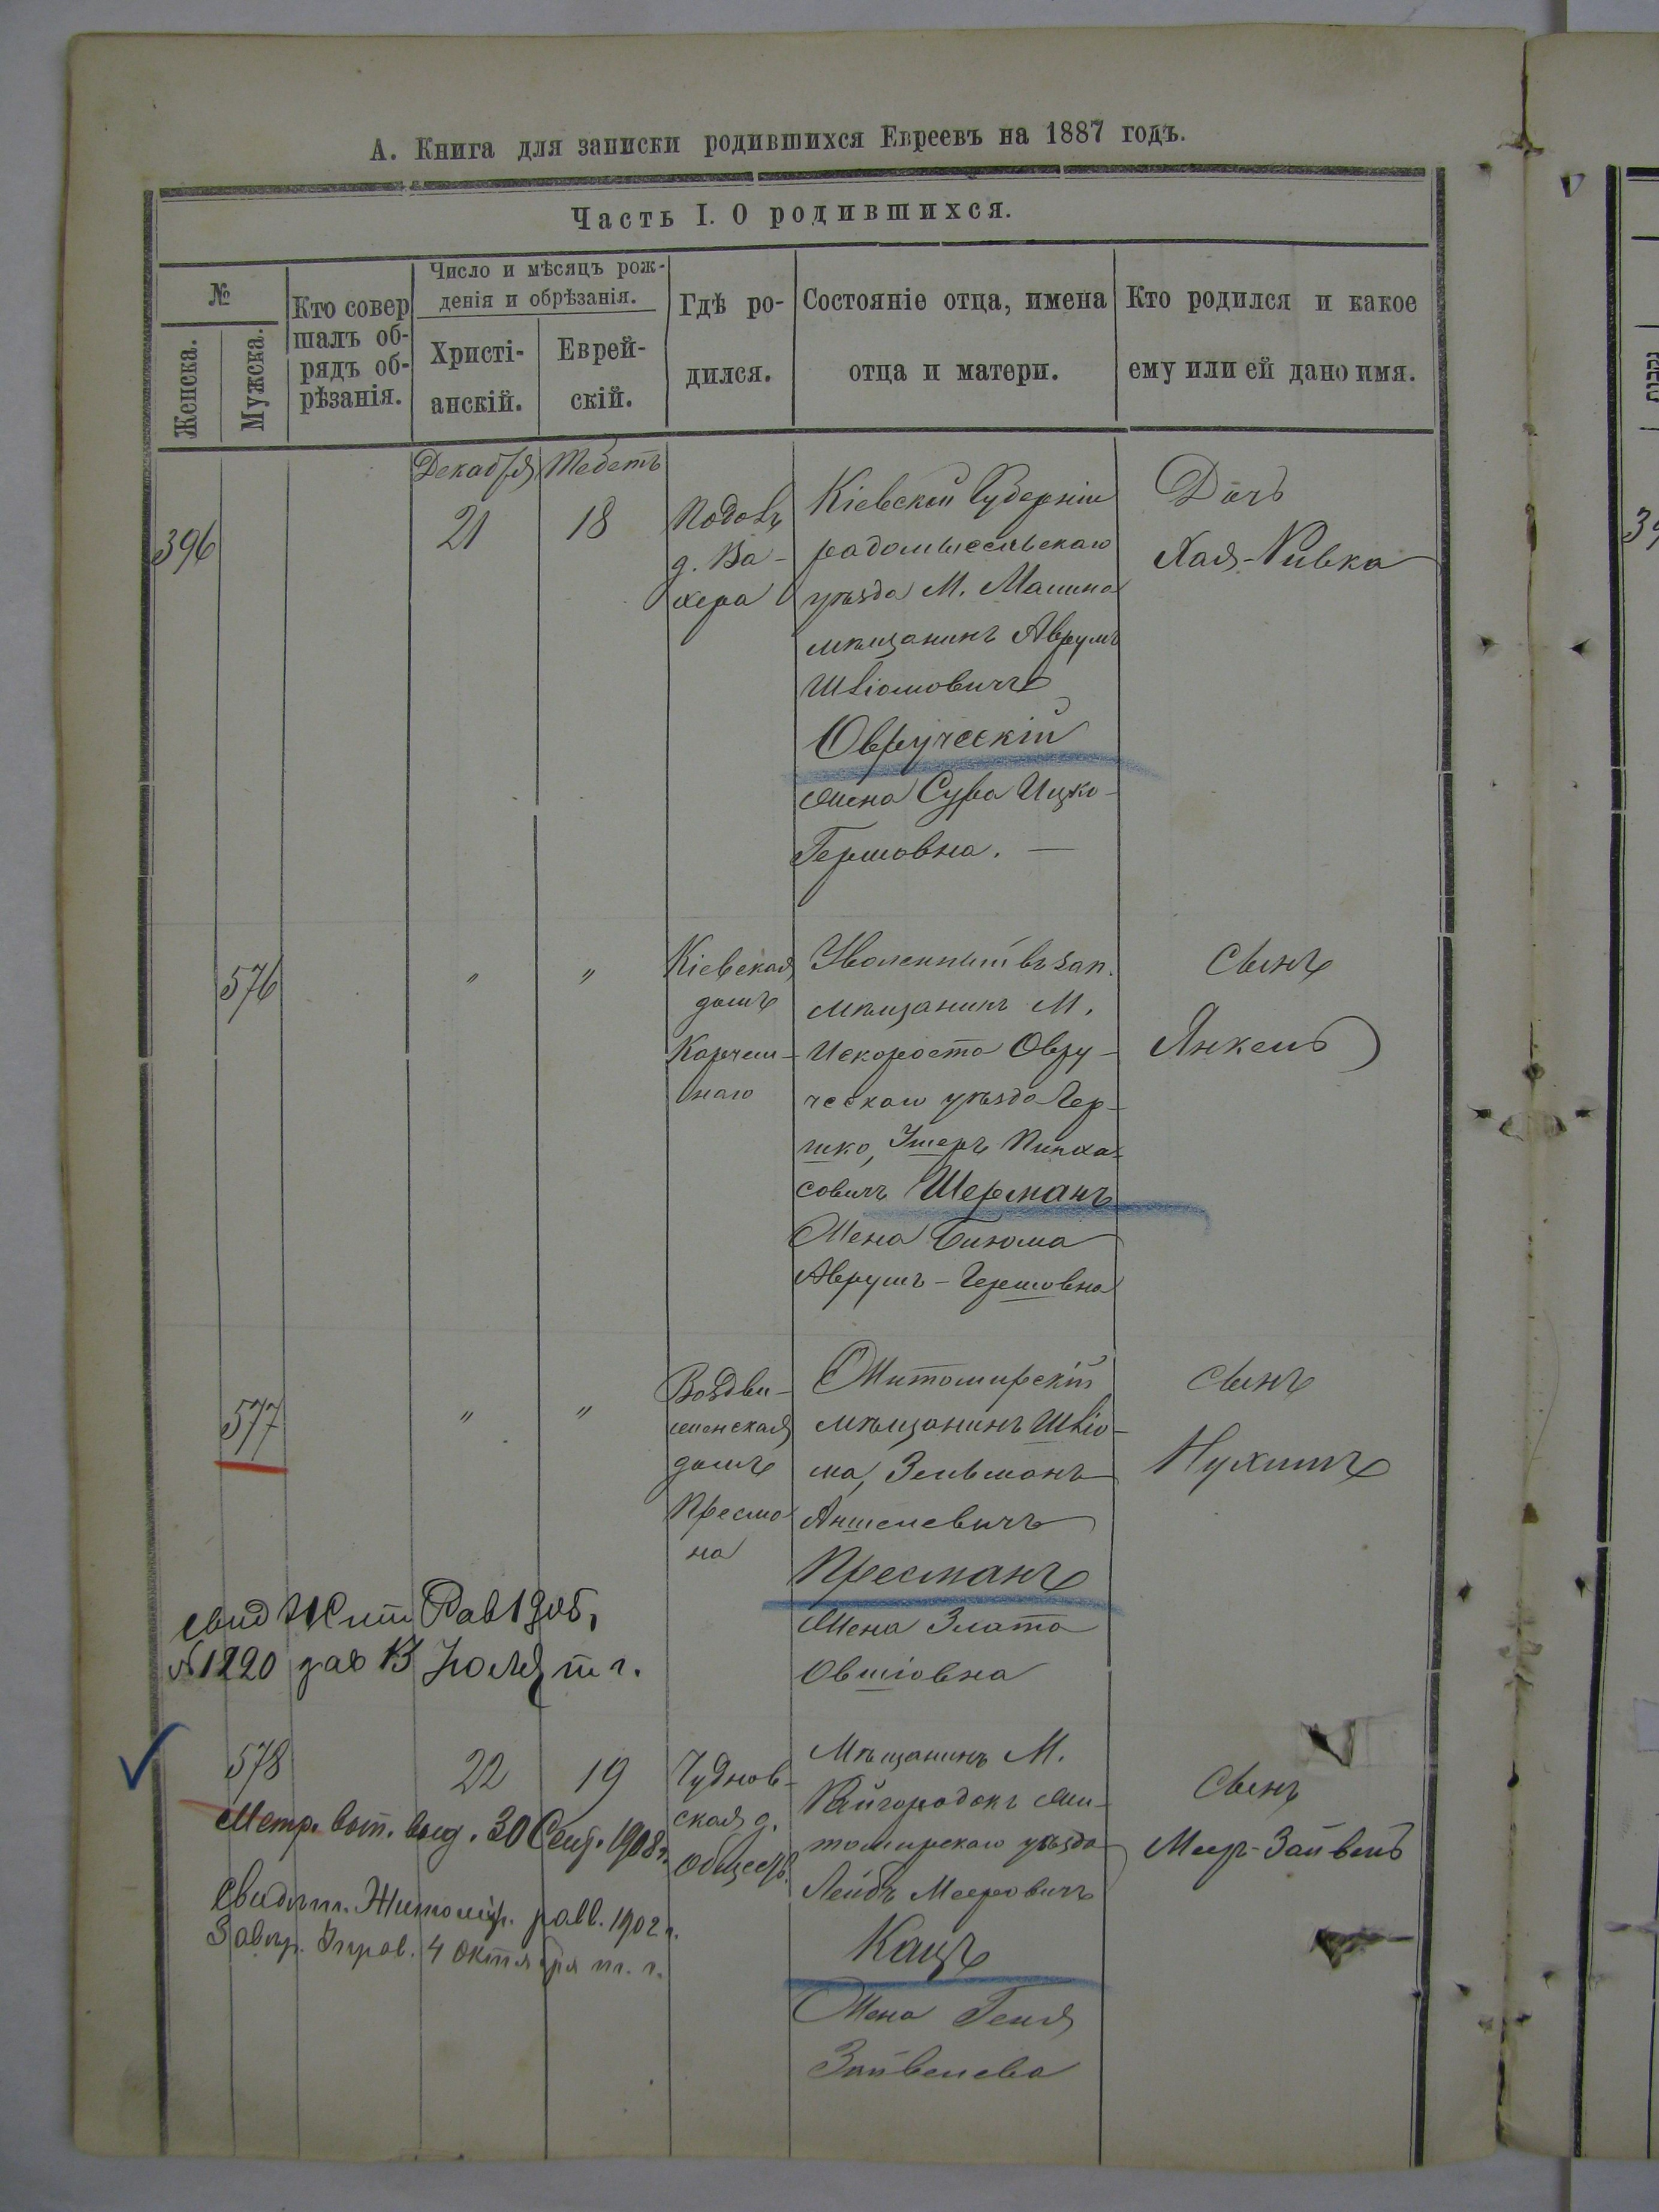 А. Книга для записки родившихся Евреевъ на 1887 годъ.
Часть I. О родившихся.
№
Женска.
Мужска.
Кто совер
шалъ об-
рядъ об-
рѣзанія.
Число и мѣсяцъ рож-
денія и обрѣзанія.
Христі-
анскій.
Еврей-
скій.
Гдѣ ро-
дился.
Состояніе отца, имена
отца и матери.
Кто родился и какое
ему или ей дано имя.
Декабря
Тебетъ
396
21
18
Подолъ
д. Ва-
хера
Кіевской Губерніи
радомысльскаго
уѣзда М. Малина
мѣщанинъ Аврумъ
Шліомовичъ
Овручскій
жена Сура Ицко-
Гершовна.
Дочь
Хая-Ривка
576
"
"
Кіевская
домъ
Карчем-
наго
Уволенный въ зап.
мѣщанинъ М.
Искороста Овру-
ческаго уѣзда Гер-
шко, Ушеръ Пинха-
совичъ Шерманъ
Жена Бинюма
Аврумъ-Гершовна
Сынъ
Янкель
577
"
"
Воздви-
женская
домъ
Пресма
на
Житомирскій
мѣщанинъ Шліо-
ма, Зельманъ
Аншелевичъ
Пресманъ
Жена Злата
Овшіовна
Сынъ
Нухимъ
свид Жит Рав 1905,
№ 1220 зав 13 Іюля т г.
578
22
19
Чуднов-
ская д.
Обществ.
Мѣщанинъ М.
Райгородокъ Жи-
томирскаго уѣзда
Лейбъ Мееровичъ
Кацъ
Жена Геня
Зайвелева
Сынъ
Меер-Зайвель
Метр. вып. выд. 30 Сент. 1908 г.
Свидѣт. Житомір. равв. 1902 г.
Завѣр. Управ. 4 Октября т. г.